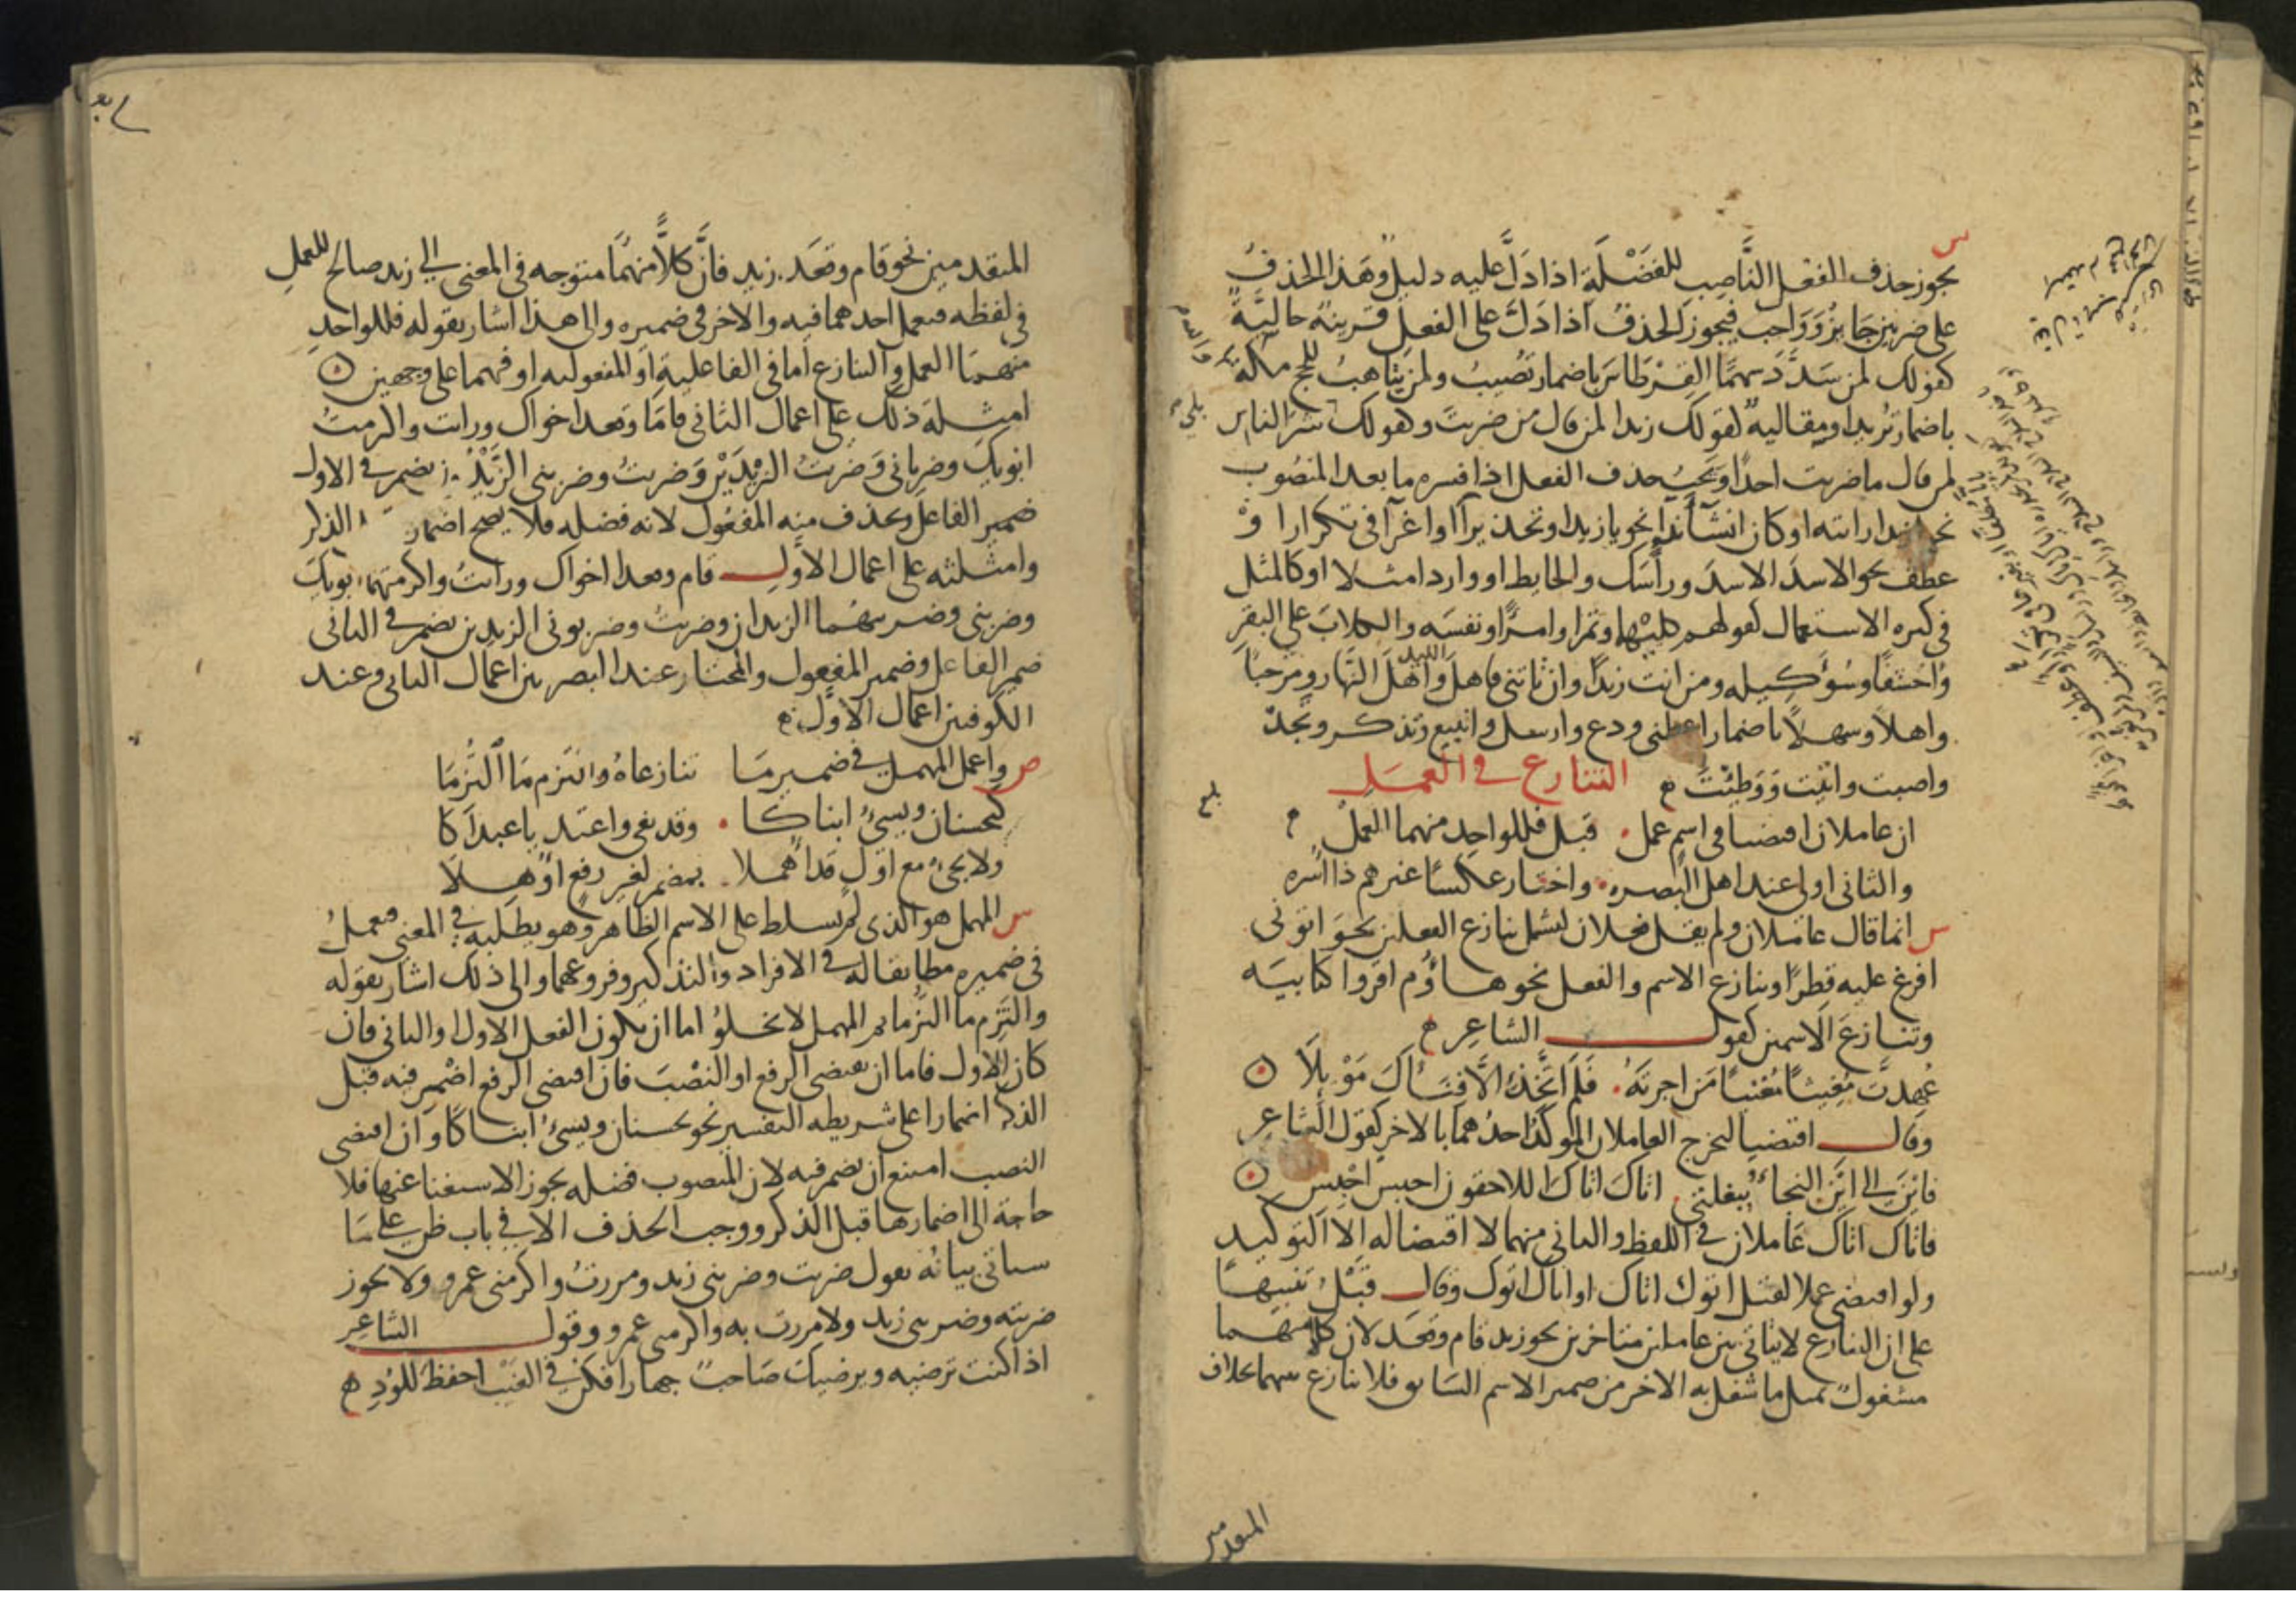 س
يجوز حذف الفعل الناصِب للفَضْلَةِ اذا دَلَّ عليه دليلٌ وهَذا الحذفُ
على ضربين جَايزٌ وَوَاجب فيجوز الحذفُ اذا دَلَّ على الفعلِ قرينةٌ حاليَّةٌ
كقولك لمن سَدَّدَ سهمًا القِرْطَاسَ باضمار تُصيبُ ولمن يتاهبُ للحج مكة
باضمار تُريد او مقاليه كقولك زيدا لمن قال من ضربتَ وكقولك شر الناس
لمن قال ما ضربت احدًا ويَجبُ حذف الفعل اذا فسره ما بعد المنصُوب
نحو زيدا رايته او كان انشآ ندآ نحو يا زيدا او تحذيرآ او اغرآ فى تكرار او
عطف نحو الاسدَ الاسدَ وراسَك والحايط او وارد امثلا او كالمثل
فى كثره الاستعمال كقولهم كليهما وتمرا وامرًا ونفسَه والكلابَ على البقرِ
وَاحَشَفًا وسُوء كيله ومن انت زيدًا وان تاتنى فاهلَ الليل واهلَ النَّهار ومرحبًا
واهلا وسهلًا باضمار اعطنى ودع وارسل واتبيع وتذكر وتجدُ
واصبت واتيت وَوَطِئْتَ
التنازع في العَمَل
ان عاملان اقتضيا فى اسمٍ عمل قبل فللواحِد منهما العملْ
والثانى اولى عند اهل البَصره واختار عكسًا غيرهم ذا اسره
س انما قال عاملان ولم يقل فعلان ليشمل تنازع الفعلين نحوَ اتونى
افرغ عليه قِطرًا وتنازع الاسم والفعل نحو هاؤُم اقروا كتابيَه
وتنازعَ الاسمين كقول الشاعِر
عُهِدتَّ مُغِيثًا مُغْنيًا مَن اجرتَهُ فَلم اتَّخذ الَّا فِنَآكَ مَوْيِلَا
وقال اقتضيا ليخرج العاملان الموكدُ احدُهما بالاخر كقول الشاعِر
فاينَ الى اينَ النجاءُ ببغلتى اتاك اتاك اللاحقون احبس احْبِسِ
فاتاك اتاك عَاملان في اللفظ والثانى منهما لا اقتضا له الا التوكيد
ولو اقتضى عملا لقيل اتوك اتاك او اتاك اتوك وقال قَبْلُ تنبيهًا
على ان التنازع لا يتاتى بين عاملين متاخرين نحو زيد قام وقعَد لان كلا منهما
مشغولٌ بمثل ما شغل به الاخر من ضمير الاسم السَابق فلا تنازع بينهما بخلاف
المتقدمين
المتقدمين نحو قام وقعَد زيد فانَّ كلًّا منهمَا متوجه فى المعنى الى زيد صالح للعملِ
فى لفظه فيعمل احدهما فيه والاخر فى ضميره والى هذا اشار بقوله فللواحد
منهما العمل والتنازع اما فى الفاعلية او المفعوليه او فيهما على وجهين
امثلة ذلك على اعمال الثانى قامَا وقعد اخواك ورايت واكرمتُ
ابويكَ وضربانى وَضربتُ الزيدَيْن وَضربتُ وضربنى الزَّيْدُون تضمر فى الاول
ضمير الفاعل وتحذف منه المفعُول لانه فضله فلا يصح اضمار الذكر
وامثلته على اعمال الاول قام وقعدا اخواك ورايتُ واكرمتهما ابويك
وضربنى وضربتهُما الزيدان وضربتُ وضربونى الزيدين تضمر فى الثانى
ضمير الفاعل وضمير المفعول والمختار عند البصريين اعمال الثانى وعند
الكوفيين اعمال الاوَّل
ص واعمل المهمل فى ضمير مَا تنازعاهُ والتزم مَا التُزِمَا
كيحسنان ويسىُ ابناكا وقد بغى واعتديا عبداكا
ولا يجىُ مع اول قد اُهملا بمضمر لغير رفع اوهلا
س المهمل هو الذى لم يسلط على الاسم الظاهر وهو يطلبه في المعنى فيعملُ
فى ضميره مطابقا له في الافراد والتذكير وفروعهما والى ذلك اشار بقوله
والتَزِم ما التزما ثم المهمل لا يخلوُ اما ان يكون الفعل الاول او الثانى فان
كان الاول فاما ان يقتضى الرفع او النصْبَ فان اقتضى الرفع اضمر فيه قبل
الذكر اضمارا على شريطه التفسير نحو يحسنان ويسىُ ابناكا وَان اقتضى
النصب امتنع ان يضمر فيه لان المنصوب فضله يجوز الاستغنا عنها فلا
حاجة الى اضمارها قبل الذكر ووجب الحذف الا في باب ظن على مَا
سياتى بيانُه تقول ضربت وضربنى زيد ومررتُ واكرمنى عمرو ولا يجوز
ضربته وضربنى زيد ولا مررت به واكرمنى عمرو وقول الشاعِر
اذا كنت ترضيه ويرضيك صَاحبٌ جهارا فكن في الغَيْبِ احفظَ للوُدِ